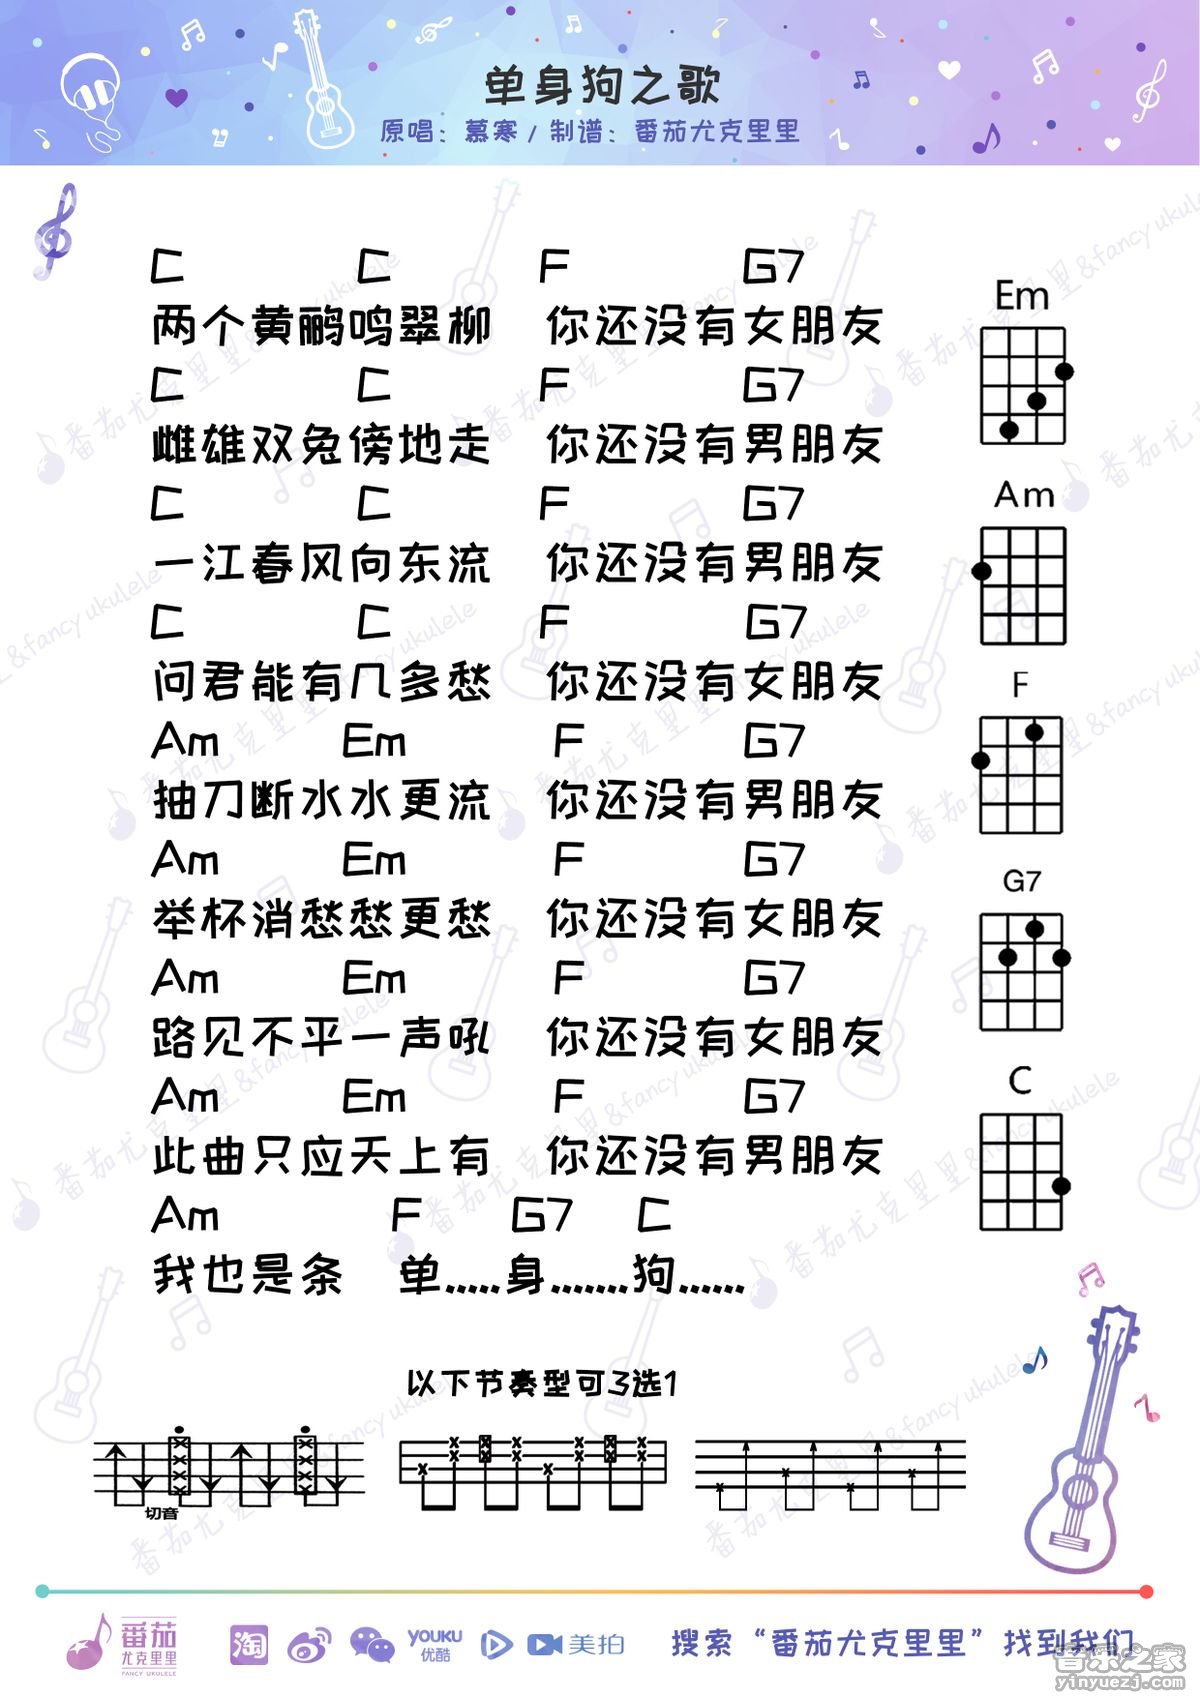 单身狗之歌
原唱：慕寒 / 制谱：番茄尤克里里
C C F G7
两个黄鹂鸣翠柳 你还没有女朋友
C C F G7
雌雄双兔傍地走 你还没有男朋友
C C F G7
一江春风向东流 你还没有男朋友
C C F G7
问君能有几多愁 你还没有女朋友
Am Em F G7
抽刀断水水更流 你还没有男朋友
Am Em F G7
举杯消愁愁更愁 你还没有女朋友
Am Em F G7
路见不平一声吼 你还没有女朋友
Am Em F G7
此曲只应天上有 你还没有男朋友
Am F G7 C
我也是条 单.....身.......狗......
Em
Am
F
G7
C
以下节奏型可3选1
切音
番茄
尤克里里
FANCY UKULELE
淘
YOUKU
优酷
美拍
搜索“番茄尤克里里”找到我们
音乐之家
yinyuezj.com
番茄尤克里里&fancy ukulele